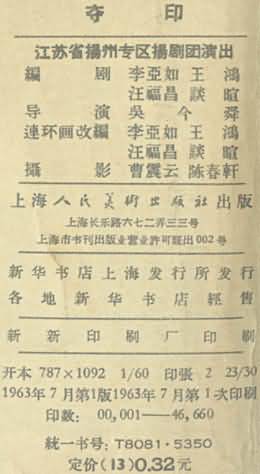 夺 印
江苏省揚州专区揚剧团演出
編 剧 李亞如 王 鴻
汪福昌 談 暄
导 演 吳 今 舜
連环画改編 李亞如 王 鴻
汪福昌 談 暄
攝 影 曹震云 陈春軒
上海人民美術出版社出版
上海长乐路六七二弄三三号
上海市书刊出版业营业許可証出002号
新华书店上海发行所发行
各地新华书店經售
新新印刷厂印刷
开本 787×1092 1/60 印張 2 23/30
1963年7月第1版 1963年7月第1次印刷
印数: 00,001——46,660
統一书号: T8081·5350
定价(13)0.32元